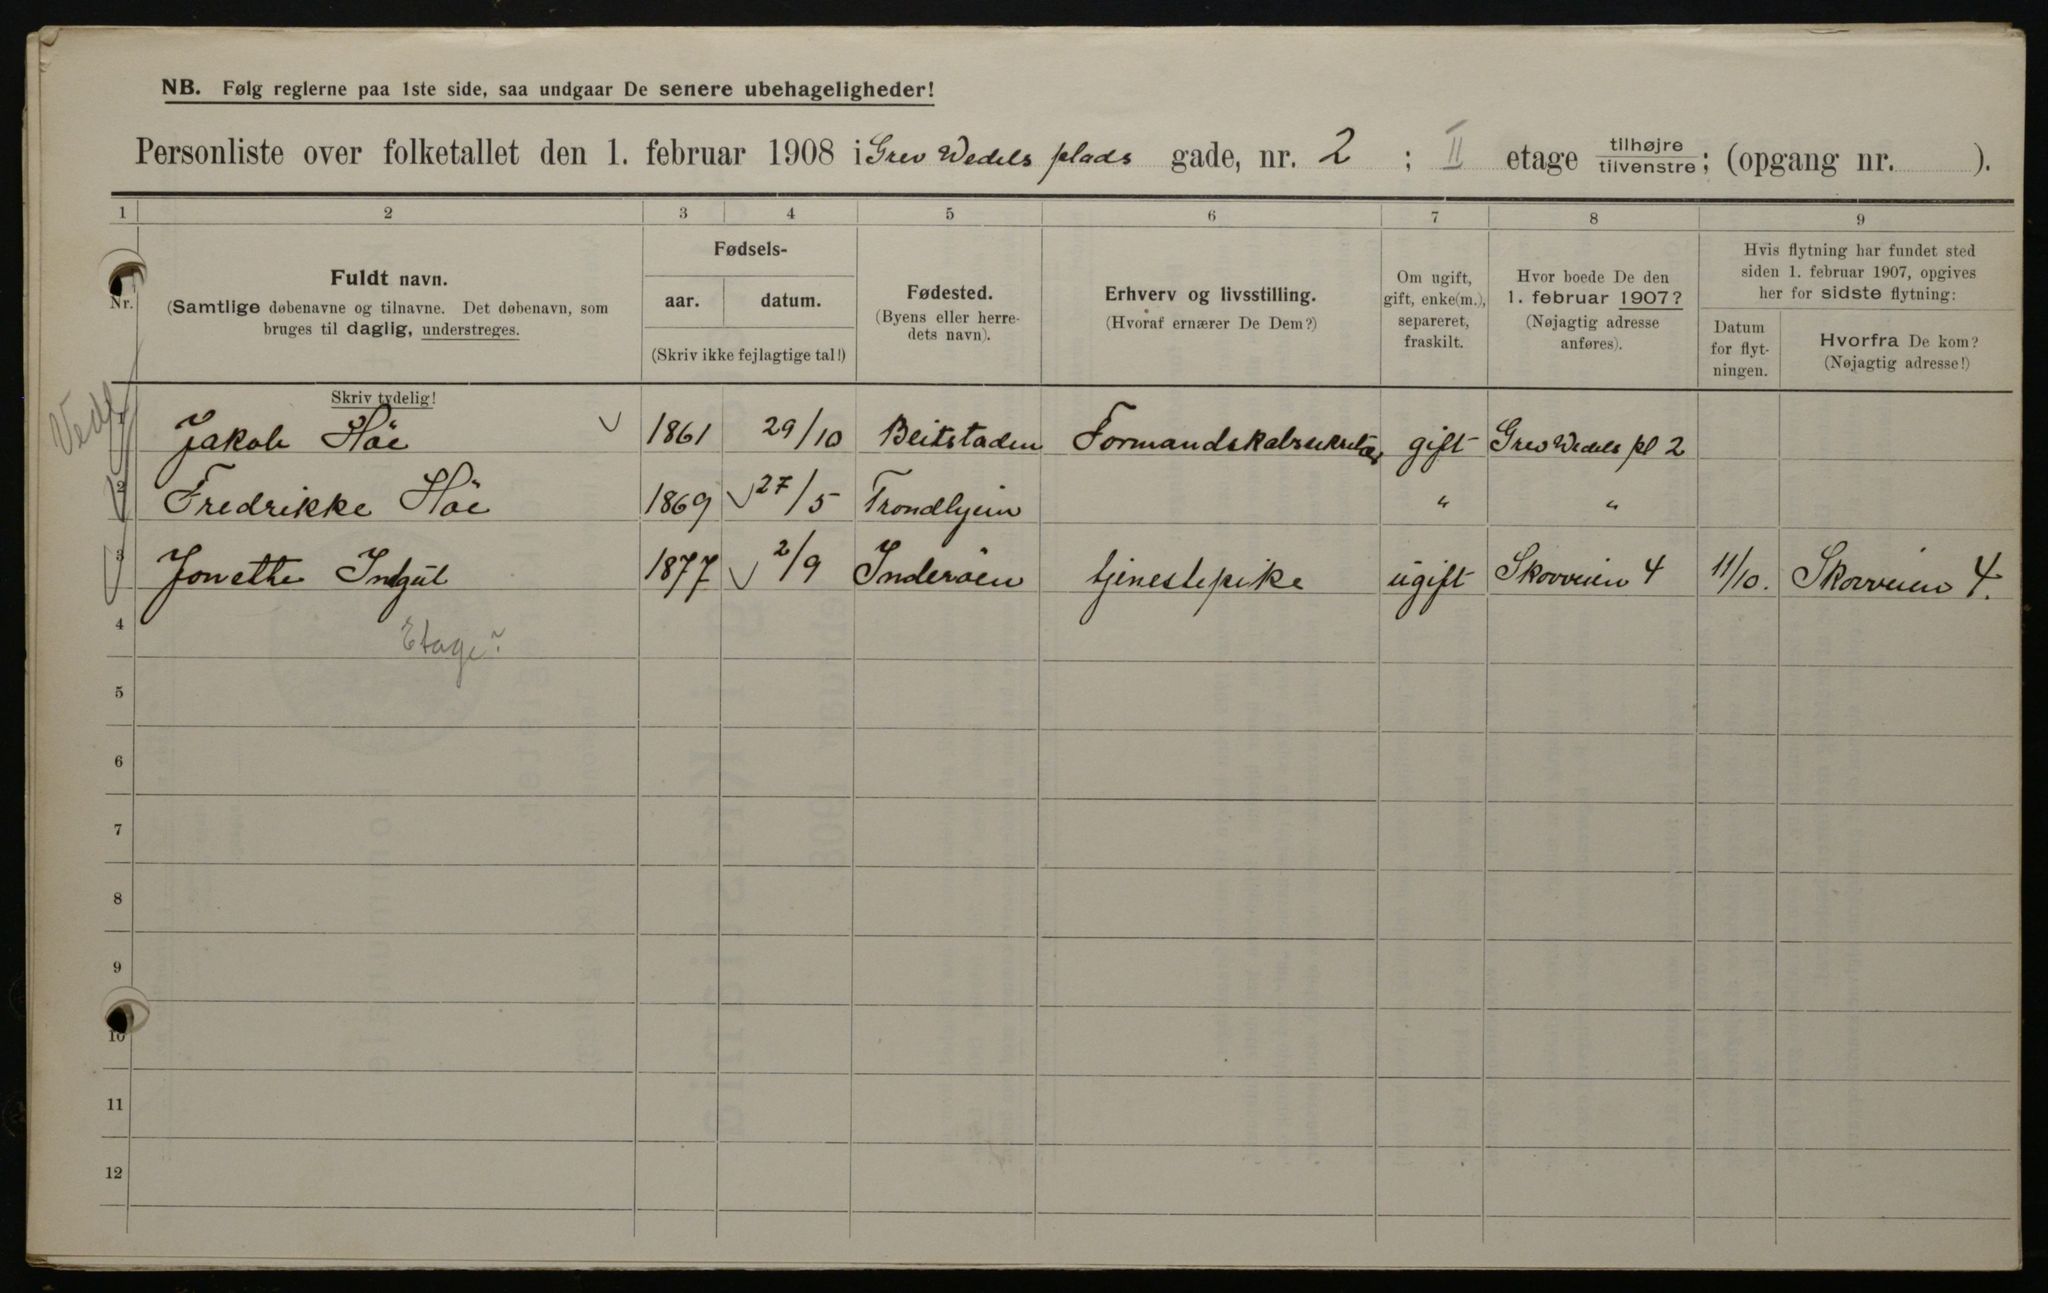 NB. Følg reglerne paa 1ste side, saa undgaar De senere ubehageligheder!
Personliste over folketallet den 1. februar 1908 i Grev Wedels plads gade, nr. 2 ; II etage tilhøjre/tilvenstre; (opgang nr. ).
1 2 3 4 5 6 7 8 9
Nr.
Fuldt navn.
(Samtlige døbenavne og tilnavne. Det døbenavn, som
bruges til daglig, understreges.
Fødsels-
aar. datum.
(Skriv ikke fejlagtige tal!)
Fødested.
(Byens eller herre-
dets navn).
Erhverv og livsstilling.
(Hvoraf ernærer De Dem?)
Om ugift,
gift, enke(m.),
separeret,
fraskilt.
Hvor boede De den
1. februar 1907?
(Nøjagtig adresse
anføres).
Hvis flytning har fundet sted
siden 1. februar 1907, opgives
her for sidste flytning:
Datum
for flyt-
ningen.
Hvorfra De kom?
(Nøjagtig adresse!)
Skriv tydelig!
1 Jakob Höe 1861 29/10 Beitstaden Formandskabssekretær gift Grev Wedels pl 2
2 Fredrikke Höe 1869 27/5 Trondhjem " "
3 Jonette 1877 2/9 Inderöen tjenestepike ugift Skovveien 4 11/10. Skovveien 4.
4
Etage?
5
6
7
8
9
10
11
12